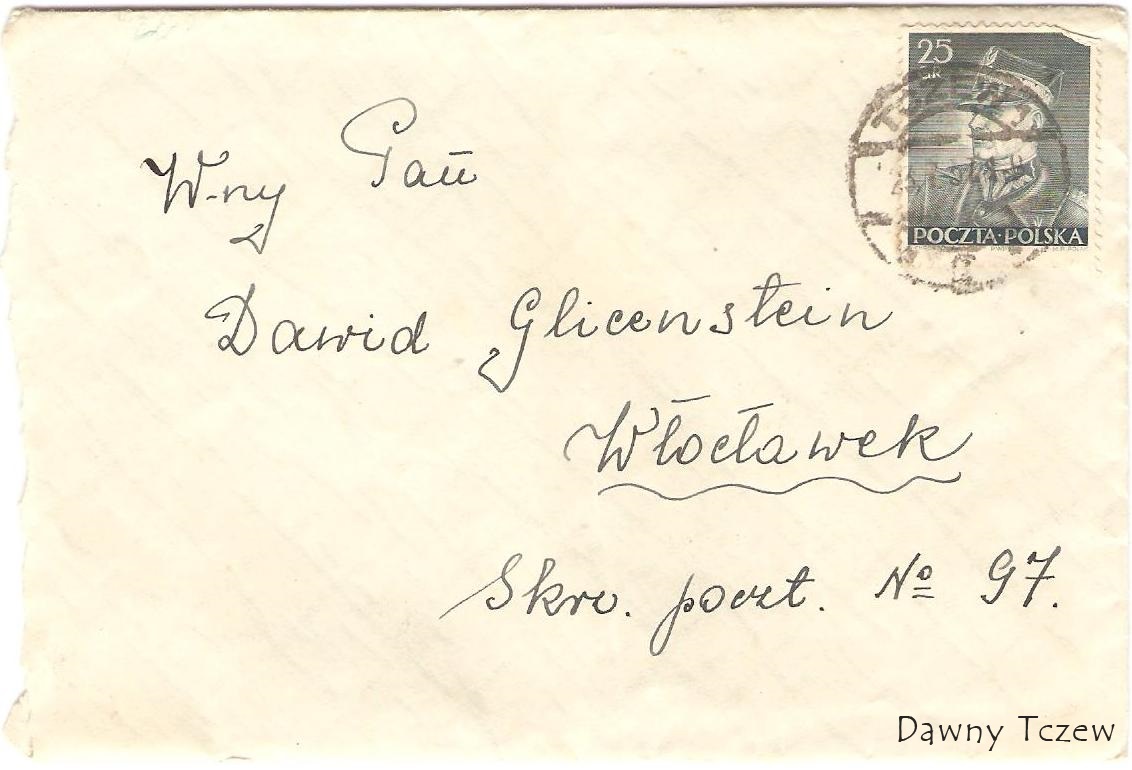 25
GR
TCZEW
POCZTA·POLSKA
W-ny Pan
Dawid Glicenstein
Włocławek
Skrz. poczt. No 97.
Dawny Tczew